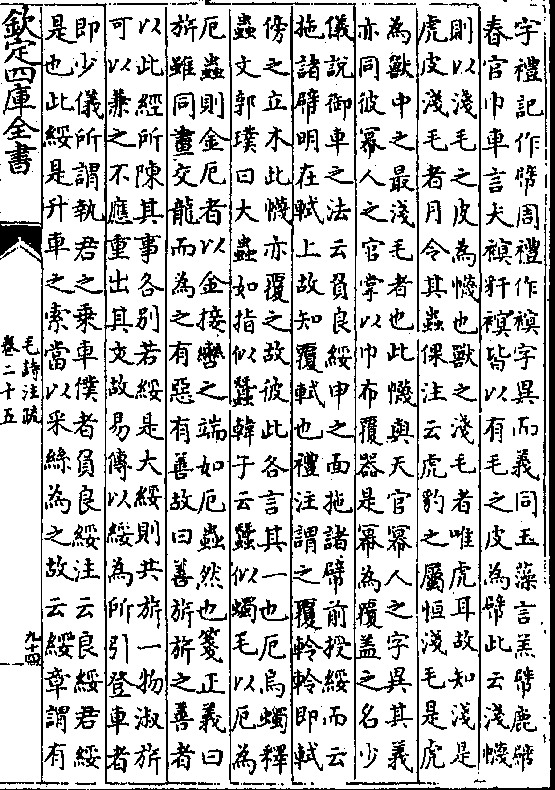 字禮記作幦周禮作𧜀字異而義同玉藻言羔幦鹿幦
春官巾車言犬𧜀豻𧜀皆以有毛之皮為幦此云淺幭
則以淺毛之皮為幭也獸之淺毛者唯虎耳故知淺是
虎皮淺毛者月令其蟲倮注云虎豹之屬恒淺毛是虎
為獸中之最淺毛者也此幭與天官冪人之字異其義
亦同彼冪人之官掌以巾布覆器是冪為覆蓋之名少
儀說御車之法云負良綏申之面拖諸幦前授綏而云
拖諸幦明在軾上故知覆軾也禮注謂之覆軨軨即軾
傍之立木此幭亦覆之故彼此各言其一也厄烏蠋釋
蟲文郭璞曰大蟲如指似蠶韓子云蠶似蠋毛以厄為
厄蟲則金厄者以金接轡之端如厄蟲然也箋正義曰
旂雖同畫交龍而為之有惡有善故曰善旂旂之善者
以此經所陳其事各別若綏是大綏則共旂一物淑旂
可以兼之不應重出其文故易傳以綏為所引登車者
即少儀所謂執君之乘車僕者負良綏注云良綏君綏
是也此綏是升車之索當以采絲為之故云綏章謂有
欽定四庫全書
毛詩注疏
卷二十五
九十四